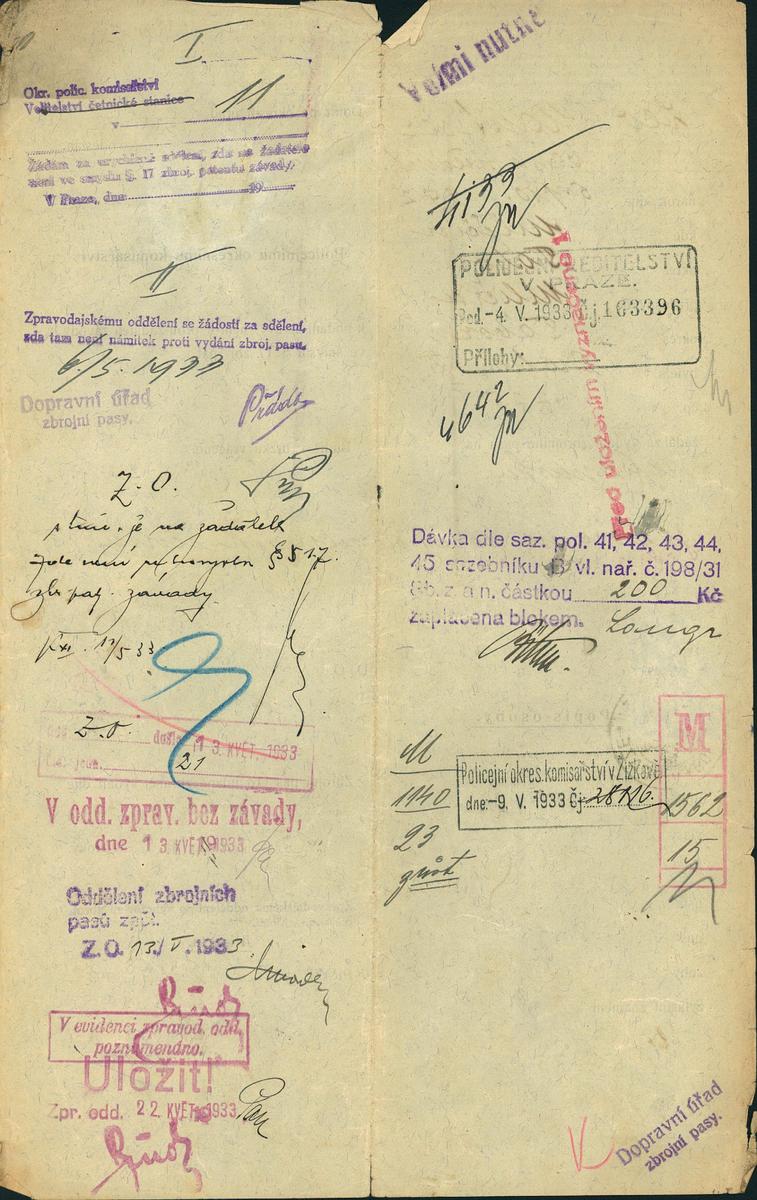 I
Okr. polic. komisařství
Velitelství četnické stanice 11
v
Žádám za urychlené sdělení, zda na žadatele
není ve smyslu §. 17 zbroj. patentu závady.
V Praze, dne 19
II
Zpravodajskému oddělení se žádostí za sdělení,
zda tam není námitek proti vydání zbroj. pasu.
6/5. 1933
Dopravní úřad
zbrojní pasy.
Z. O.
je na žadatele
zde není §§ 17.
zbr. pat. závady
12/5 33
Z. O.
došlo 13. KVĚT. 1933
21
V odd. zprav. bez závady,
dne 13. KVĚT. 1933
Oddělení zbrojních
pasů zpět.
Z. O. 13/V. 1933
V evidenci zpravod. odd.
poznamenáno.
Uložit!
Zpr. odd. 22. KVĚT. 1933
Velmi nutné
4133
POLICEJNÍ ŘEDITELSTVÍ
V PRAZE.
Pod. -4. V. 1933 Čj. 163396
Přílohy:
Před uložením vyznačeno!
4642
Dávka dle saz. pol. 41, 42, 43, 44,
45 sazebníku B vl. nař. č. 198/31
Sb. z. a n. částkou 200 Kč
zaplacena blokem.
Langr
M
1140
23
Policejní okres. komisařství v Žižkově
dne: -9. V. 1933 Čj. 28116.
M
1562
15
Dopravní úřad
zbrojní pasy.